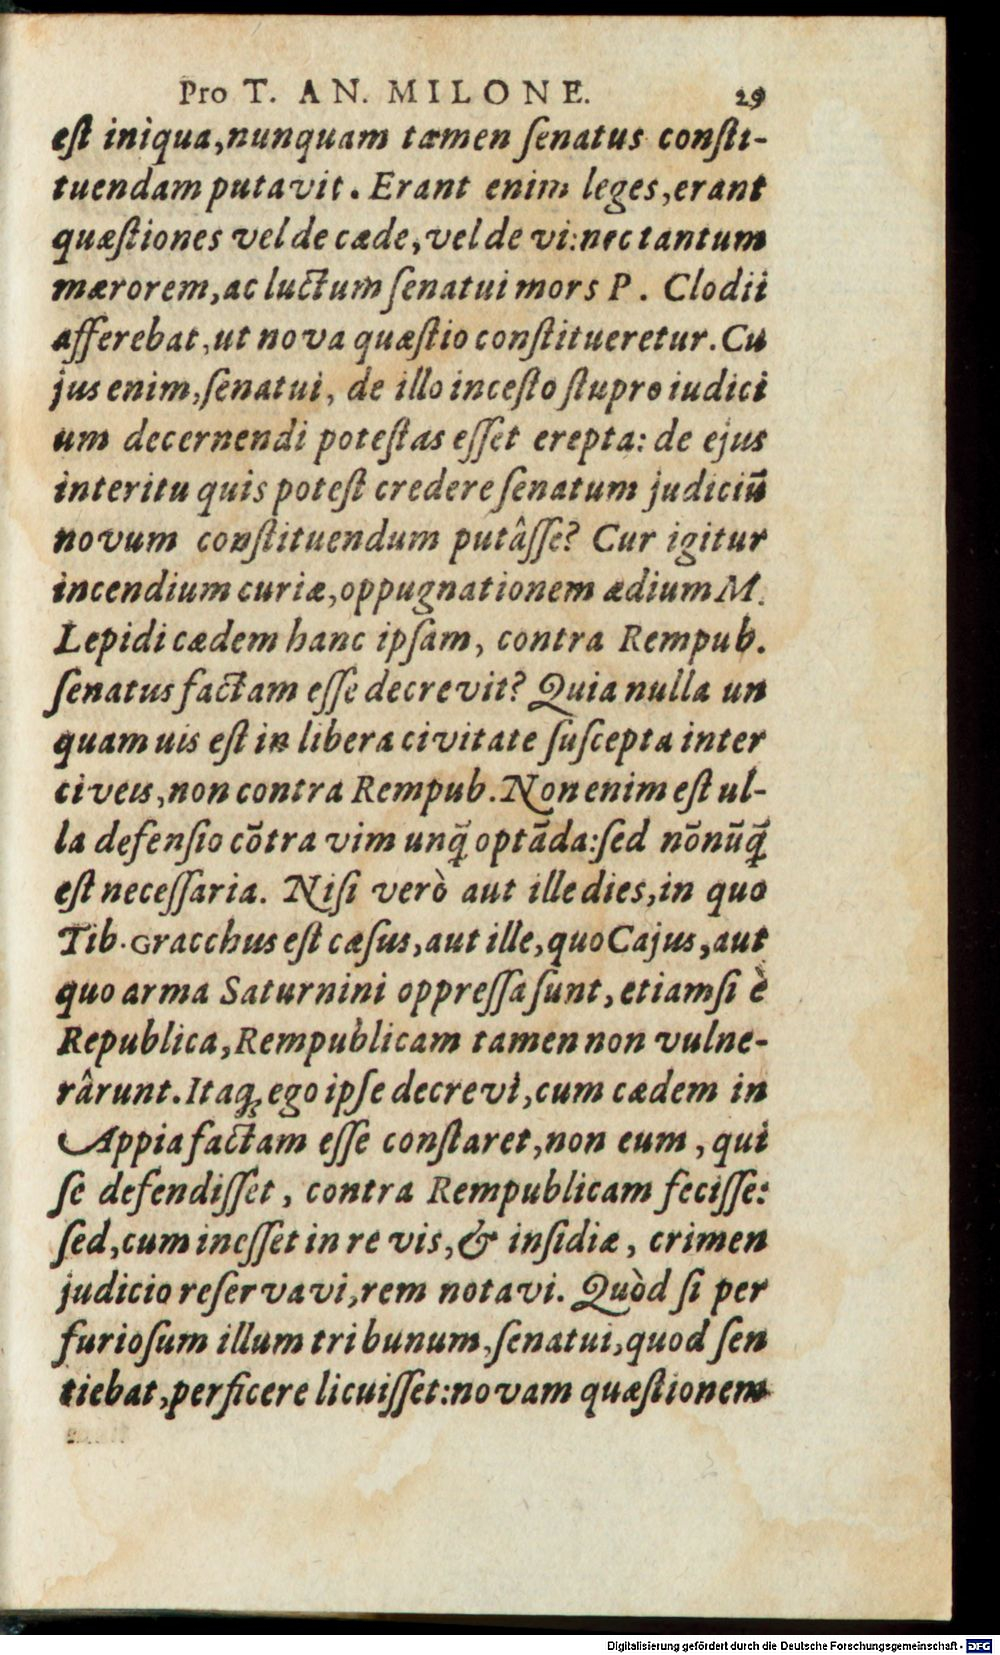 Pro T. AN. MILONE. 29
est iniqua,nunquam tamen ſenatus conſti-
tuendam putavit. Erant enim leges,erant
quæſtiones vel de cæde, vel de vi: nec tantum
mærorem, ac luctum ſenatui mors P. Clodii
afferebat, ut nova quæſtio conſtitueretur. Cu
jus enim, ſenatui, de illo inceſto ſtupro iudici
um decernendi poteſtas eſſet erepta: de ejus
interitu quis poteſt credere ſenatum judiciū
novum conſtituendum putâſſe? Cur igitur
incendium curiæ, oppugnationem ædium M.
Lepidi cædem hanc ipſam, contra Rempub.
ſenatus factam eſſe decrevit? Quia nulla un
quam uis eſt in libera civitate ſuſcepta inter
civeis, non contra Rempub. Non enim eſt ul-
la defenſio cōtra vim unq̄ optāda: ſed nōnūq̄
eſt neceſſaria. Niſi verò aut ille dies, in quo
Tib. Gracchus eſt cæſus, aut ille, quo Cajus, aut
quo arma Saturnini oppreſſa ſunt, etiamſi è
Republica, Rempublicam tamen non vulne-
rârunt. Itaq; ego ipſe decrevi, cum cædem in
Appia factam eſſe conſtaret, non eum, qui
ſe defendiſſet, contra Rempublicam feciſſe:
ſed, cum ineſſet in re vis, & inſidiæ, crimen
judicio reſervavi, rem notavi. Quòd ſi per
furioſum illum tribunum, ſenatui, quod ſen
tiebat, perficere licuiſſet: novam quæſtionem
Digitalisierung gefördert durch die Deutsche Forschungsgemeinschaft - DFG